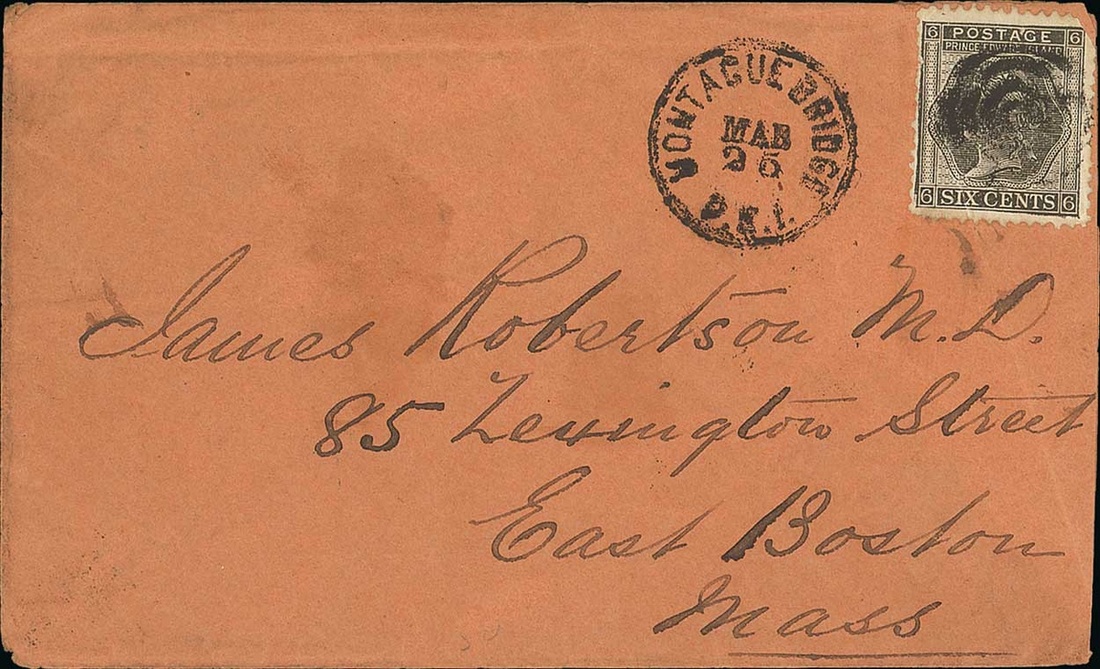 6 POSTAGE 6
PRINCE EDWARD ISLAND
6 SIX CENTS 6
MONTAGUE BRIDGE
MAR
25
P.E.I.
James Robertson M.D.
85 Lexington Street
East Boston
Mass